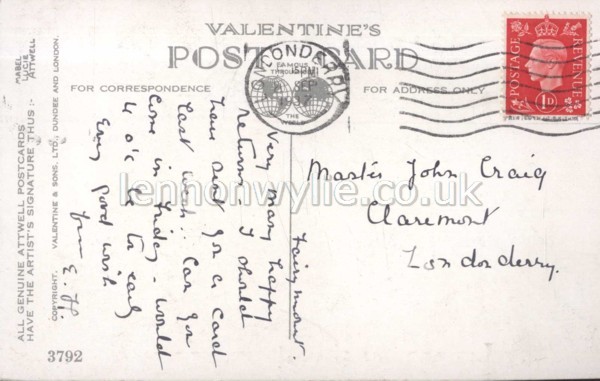 VALENTINE'S
POSTCARD
FAMOUS
THROUGHOUT
THE
WORLD
FOR CORRESPONDENCE
FOR ADDRESS ONLY
LONDONDERRY
SEP
1937
POSTAGE
REVENUE
1D
MABEL
LUCIE
ATTWELL
ALL GENUINE ATTWELL POSTCARDS
HAVE THE ARTIST'S SIGNATURE THUS :-
COPYRIGHT. VALENTINE & SONS, LTD., DUNDEE AND LONDON.
3792
Fairmount.
Very many happy
returns - I should
have sent you a card
last week. Can you
come in Friday - would
4 o'c be too early
Every good wish
from E. H.
Master John Craig
Claremont
Londonderry.
lennonwylie.co.uk